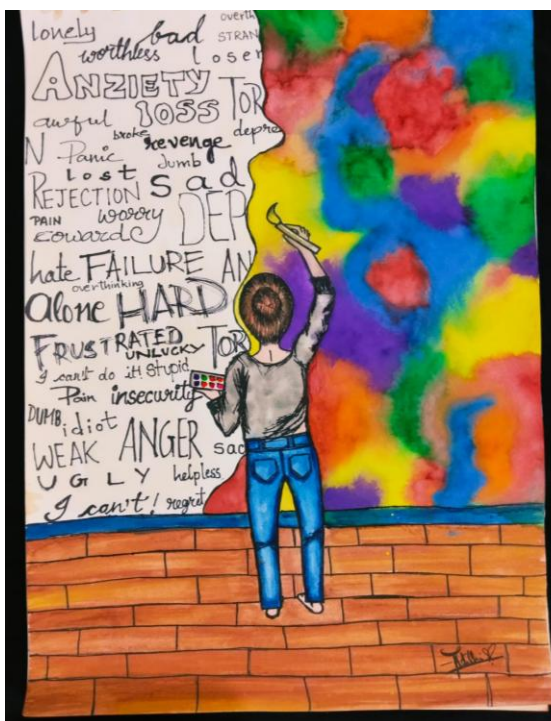 lonely bad overth
worthless loser STRAN
ANZIETY
awful lOSS TOR
broke revenge depre
N Panic Jumb
lost
REJECTION Sad
PAIN worry DEP
Coward
hate FAILURE AN
overthinking
Alone HARD
FRUSTRATED TOR
UNLUCKY
I can't do it! Stupid
Pain insecurity
DUMB idiot
WEAK ANGER sad
UGLY helpless
I can't! regret